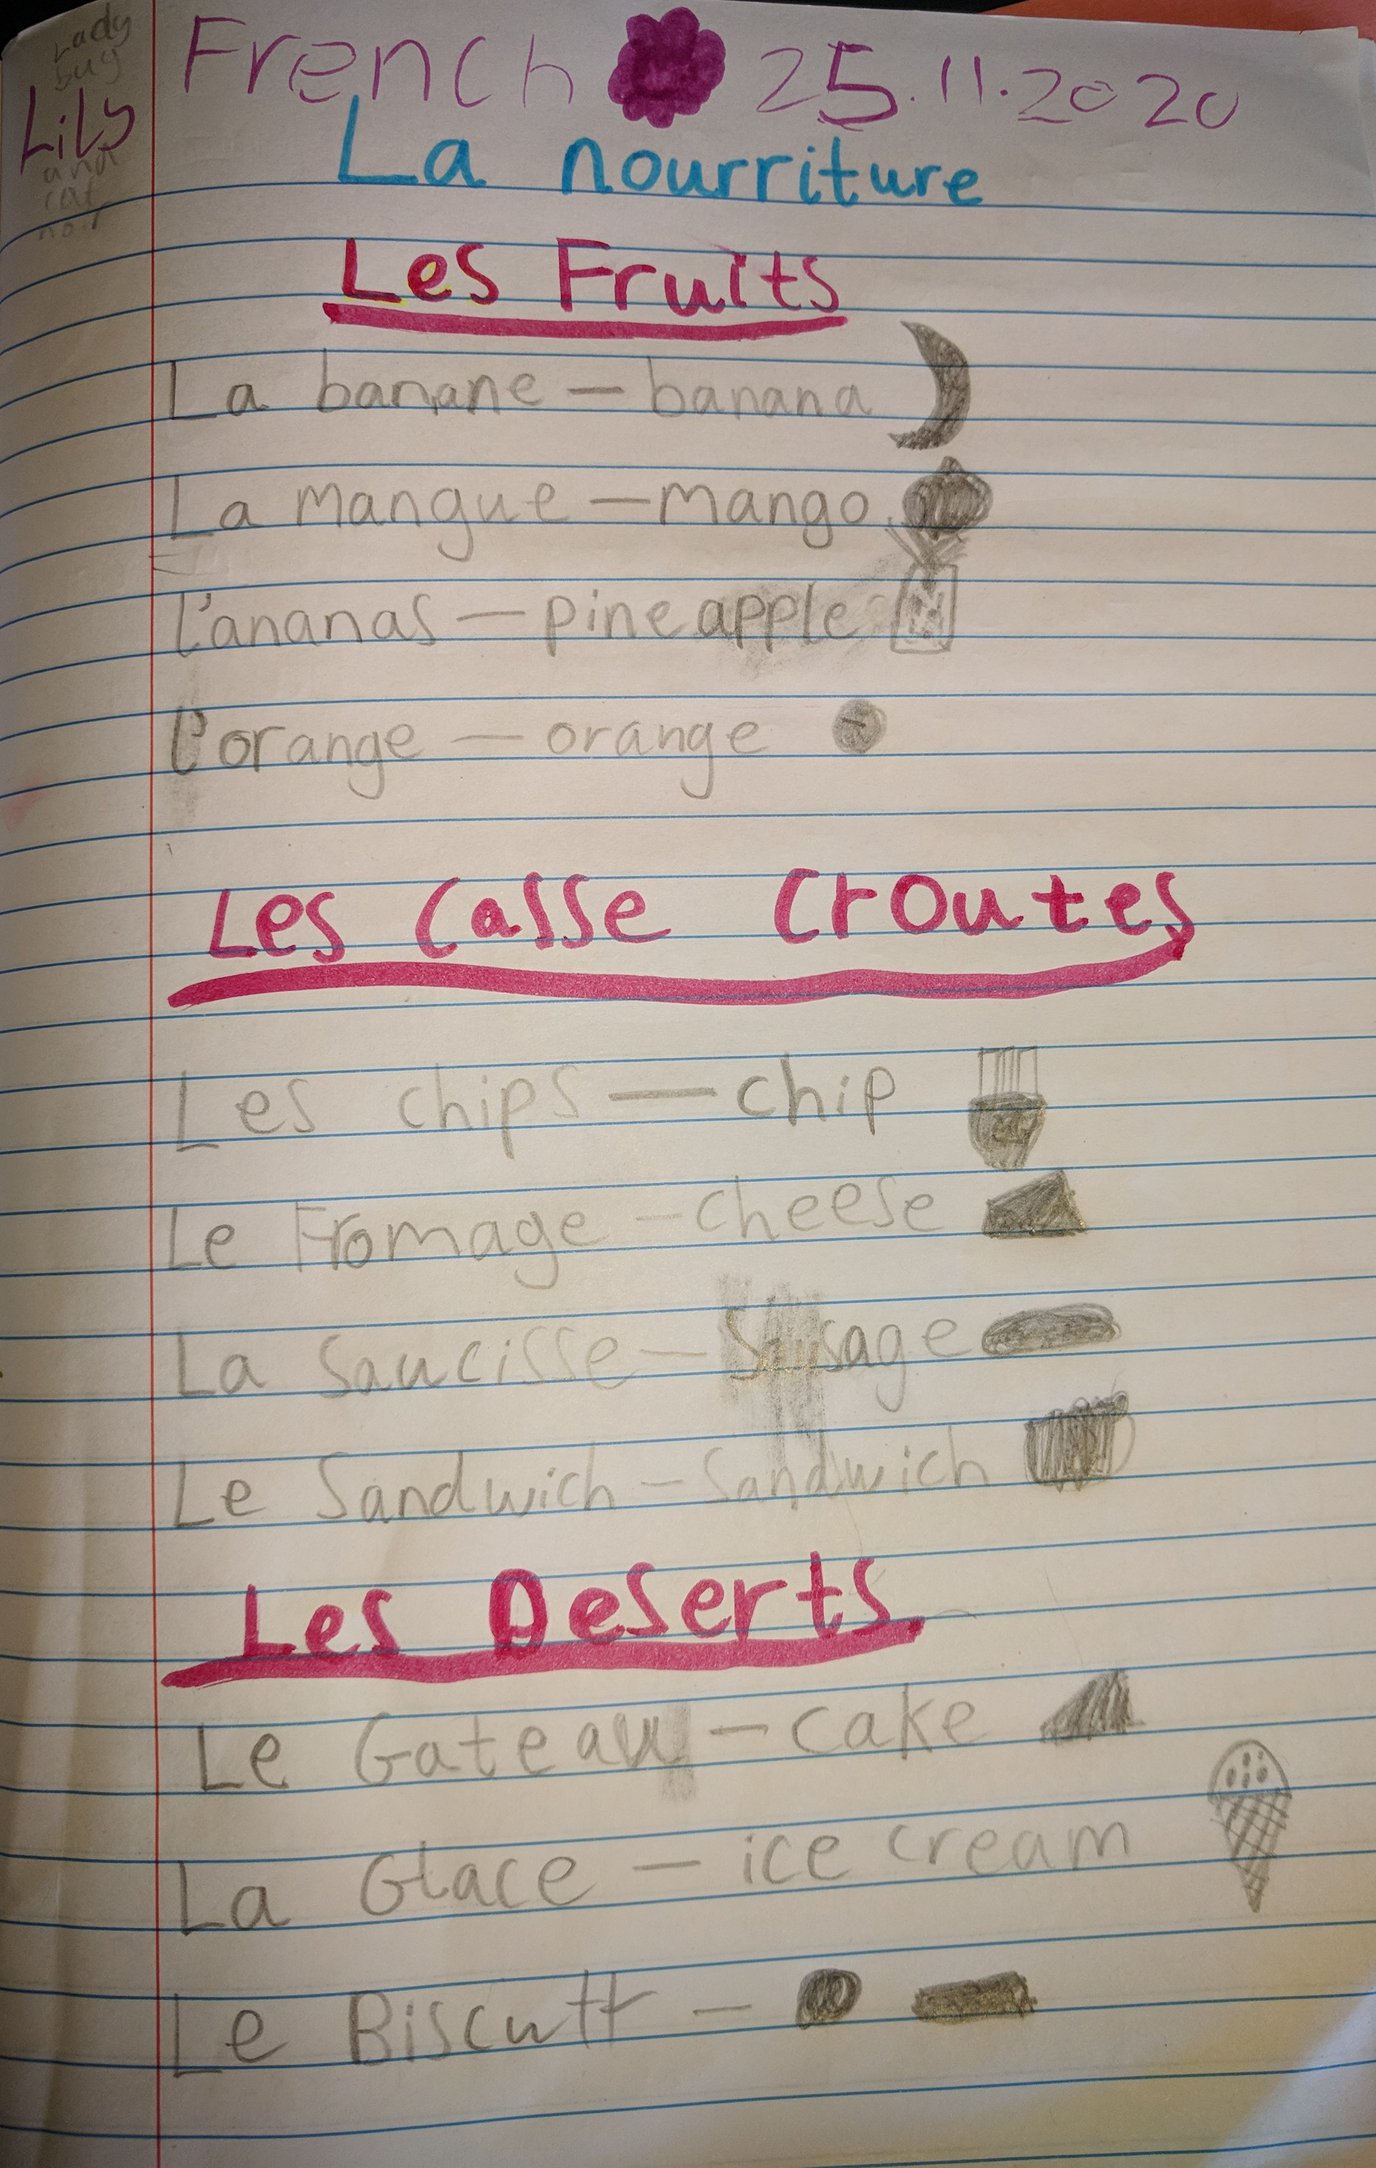 Lady
bug
Lily
and
cat
noir
French 25.11.2020
La nourriture
Les Fruits
La banane — banana
La mangue — mango
l'ananas — pineapple
l'orange — orange
Les Casse Croutes
Les chips — chip
Le Fromage — cheese
La Saucisse — Sausage
Le Sandwich — Sandwich
Les Deserts
Le Gateau — cake
La Glace — ice cream
Le Biscutt —